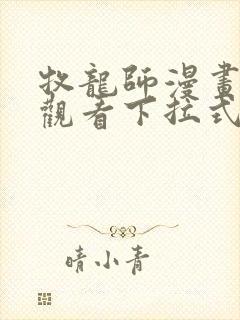 牧龍師漫畫
觀看下拉式
晴小青